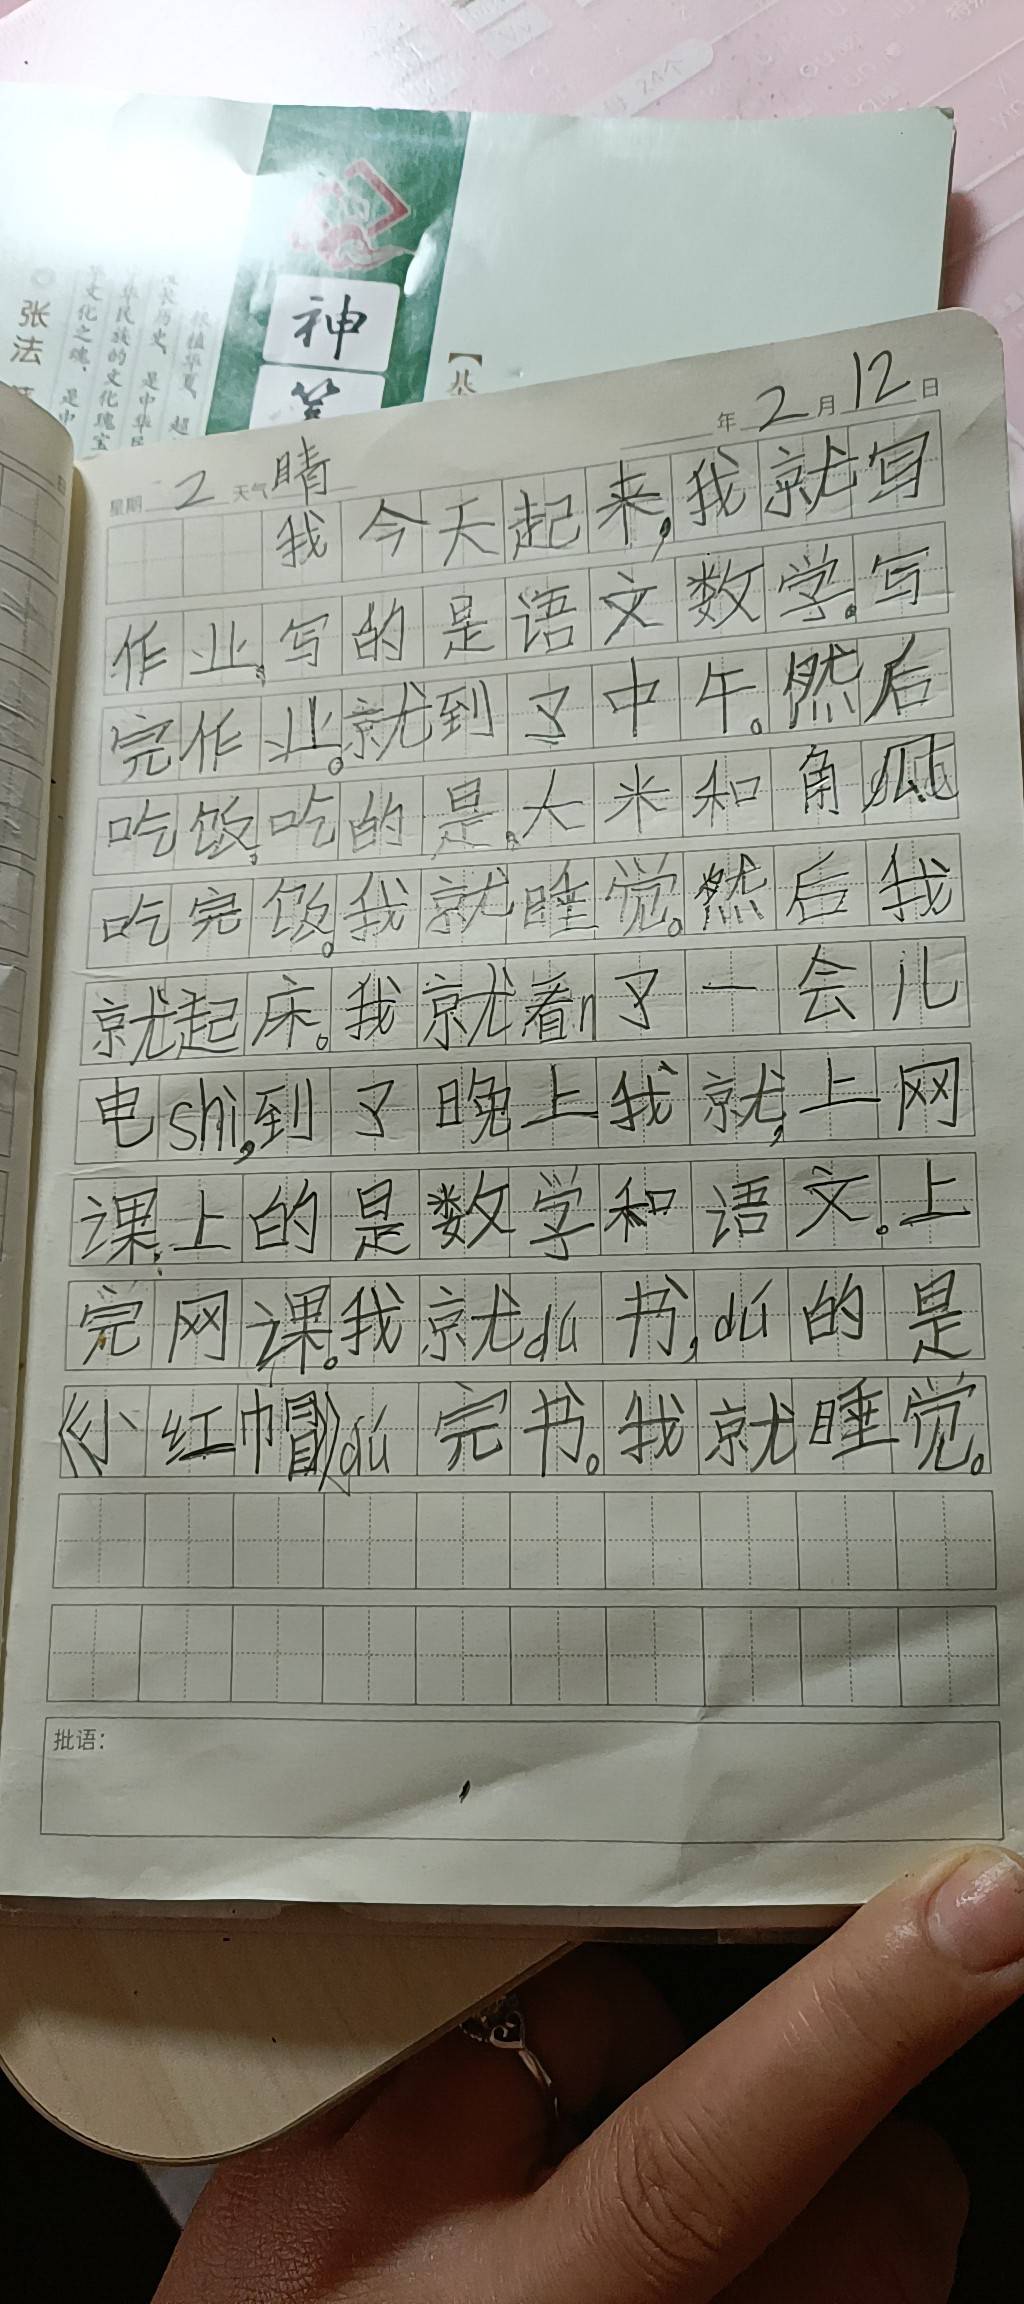 24个
张法
根植华夏，超
是中华民
华民族的文化瑰宝
文化之魂，是中
神
笔
年 2 月 12 日
星期 2 天气 晴
我今天起来,我就写
作业,写的是语文数学。写
完作业。就到了中午。然后
吃饭,吃的是,大米和角瓜
吃完饭。我就睡觉。然后我
就起床。我就看了一会儿
电shì,到了晚上我就,上网
课,上的是数学和语文。上
完网课。我就dú书,dú的是
《小红帽》dú完书。我就睡觉。
批语：